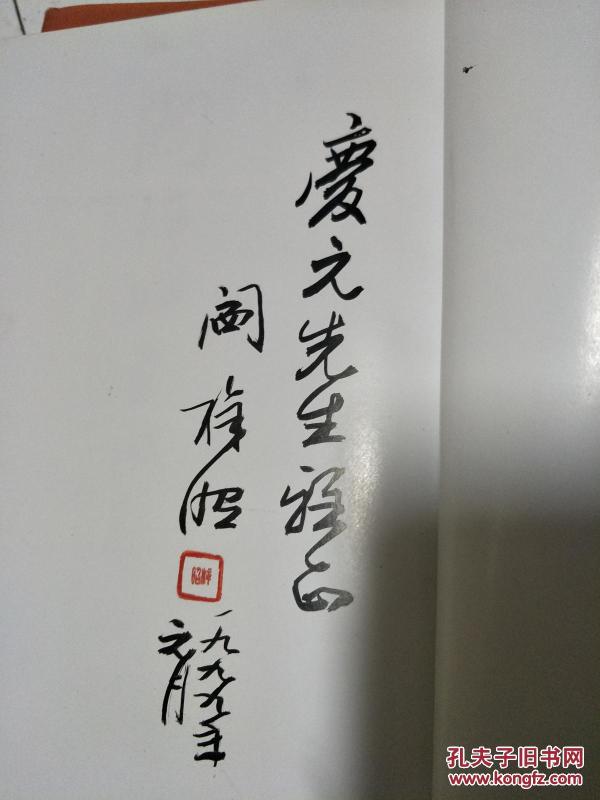 慶元先生雅正
阎梓昭
一九九九年
元月
孔夫子旧书网
www.kongfz.com